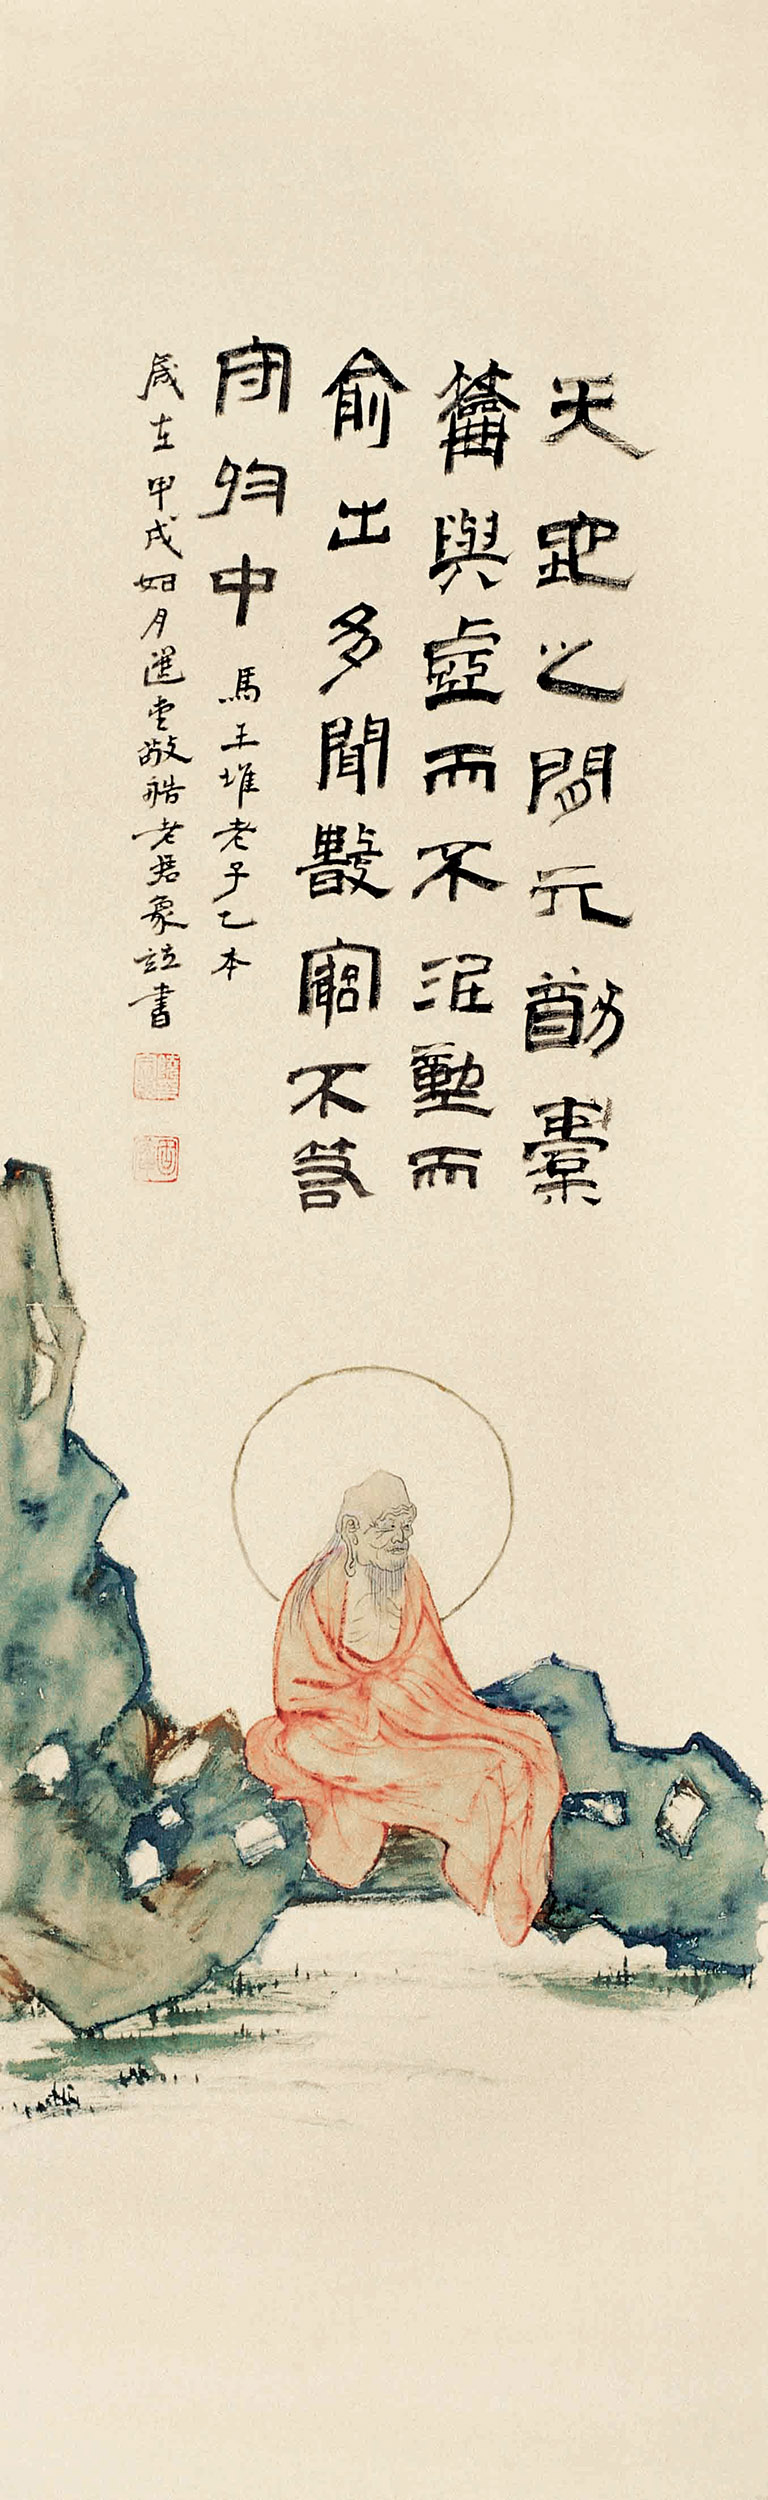 天地之閒亓猷橐
籥與虛而不淈動而
俞出多聞數窮不若
守於中 馬王堆老子乙本
歲在甲戌如月選堂敬貌老君象竝書